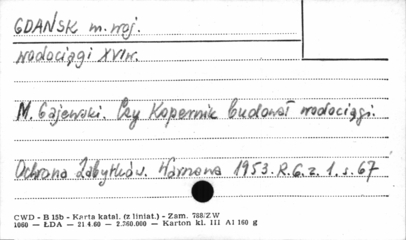 GDAŃSK m. woj.
wodociągi XVI w.
M. Gajewski. Czy Kopernik budował wodociągi.
Ochrona Zabytków. Warszawa 1953. R. 6. z. 1. s. 67
CWD - B 15b - Karta katal. (z liniat.) - Zam. 788/ZW
1060 — ŁDA — 21.4.60 — 2.760.000 — Karton kl. III A1 160 g